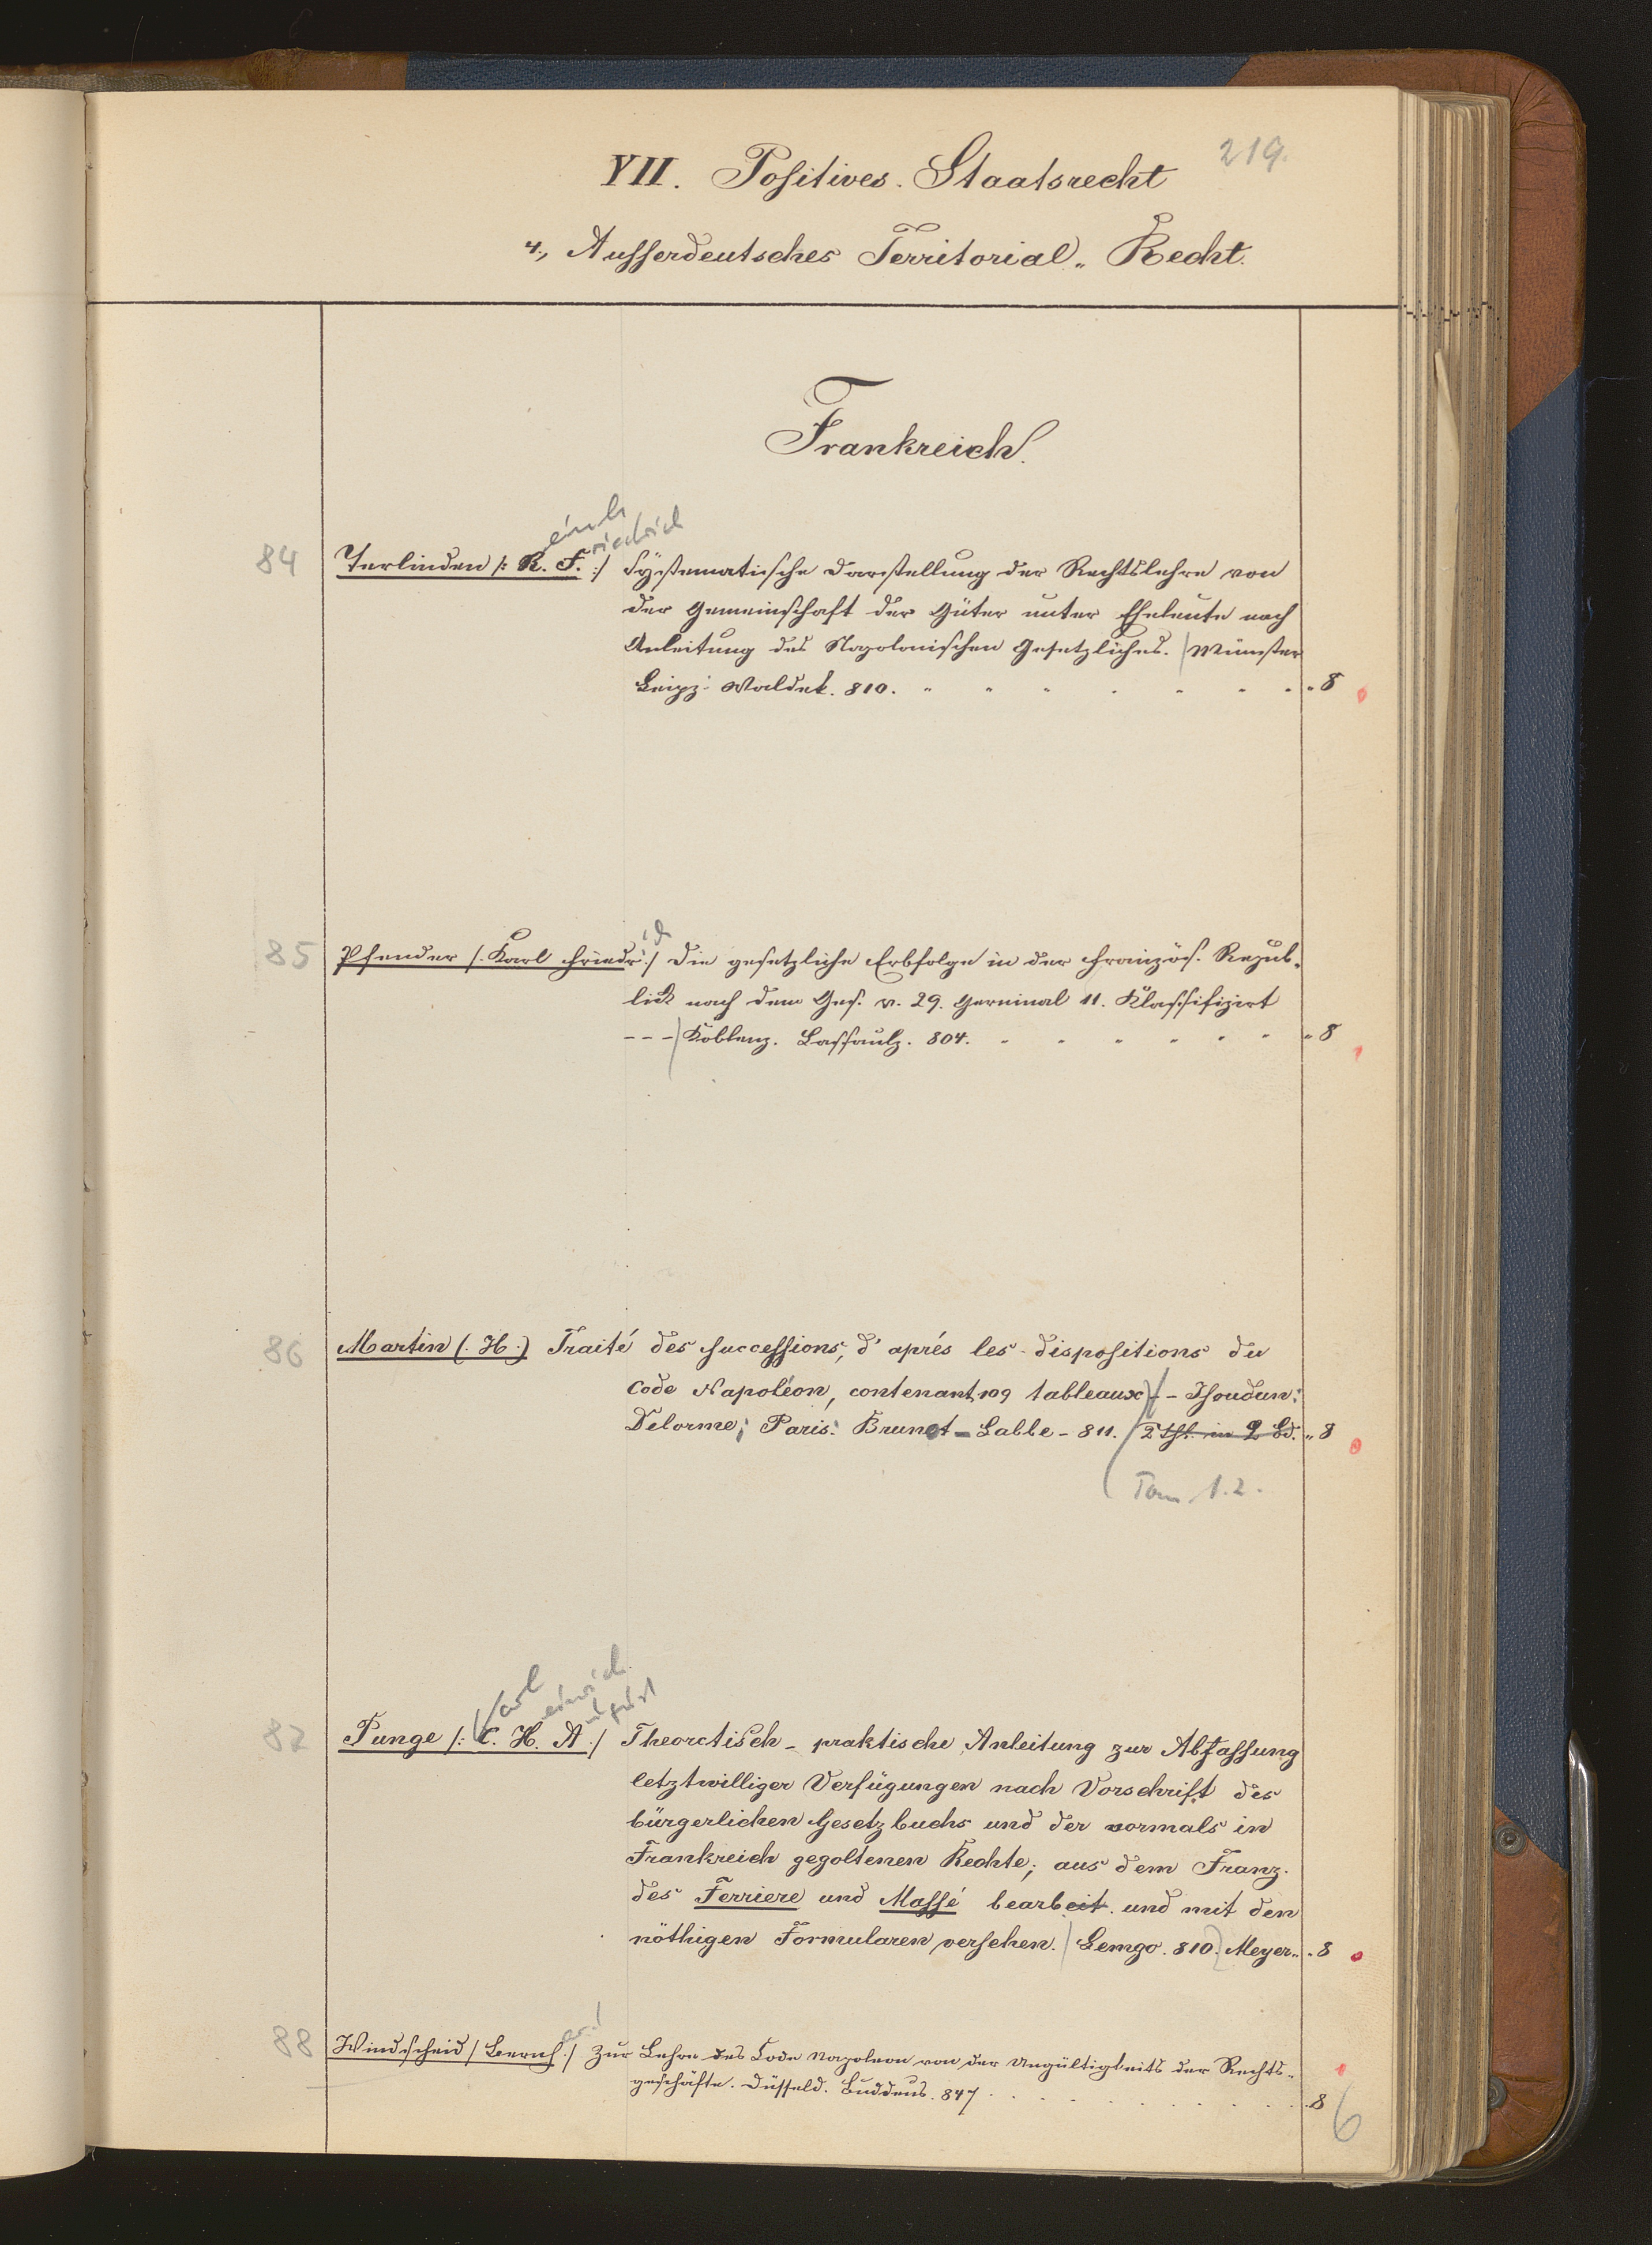 219.
VII. Positives Staatsrecht
4., Ausserdeutsches Territorial-Recht.
Frankreich.
einh riedrich
84 Terlinden /: R. F. :/ Systematische Darstellung der Rechtslehre von
der Gemeinschaft der Güter unter Eheleute nach
Anleitung des Napoleonischen Gesetzbuches. Münster
Leipz: Waldek. 810. " 8
ich
85 Pfender /: Karl Friedr: / Die gesetzliche Erbfolge in der französ. Repub-
lick nach dem Ges. v. 29. Germinal 11. Klassifizirt
--- Koblenz. Lassaulx. 804. " 8
86 Martin (. H .) Traité des successions, d'aprés les dispositions du
Code Napoléon, contenant 109 tableaux -- Issoudun:
Delorme; Paris: Brunot-Labbe - 811. 2 Thl. in 2 Bd. " 8
Tom 1.2.
Karl einrich ugust
87 Punge /: C. H. A :/ Theoretisch-praktische Anleitung zur Abfassung
letztwilliger Verfügungen nach Vorschrift des
bürgerlichen Gesetzbuchs und der vormals in
Frankreich gegoltenen Rechte; aus dem Franz.
des Ferriere und Massé bearbeit. und mit den
nöthigen Formularen versehen. Lemgo. 810. Meyer. " 8
ard
88 Windscheid / Bernh: / Zur Lehre des Code Napoleon von der Ungültigkeits der Rechts-
geschäfte. Düsseld. Buddeus. 847 . 8
6